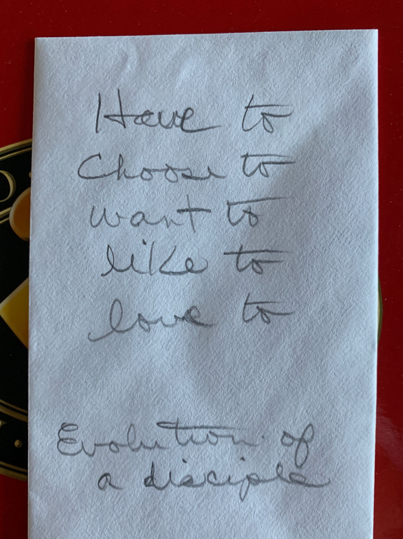 Have to
Choose to
want to
like to
love to
Evolution of
a disciple